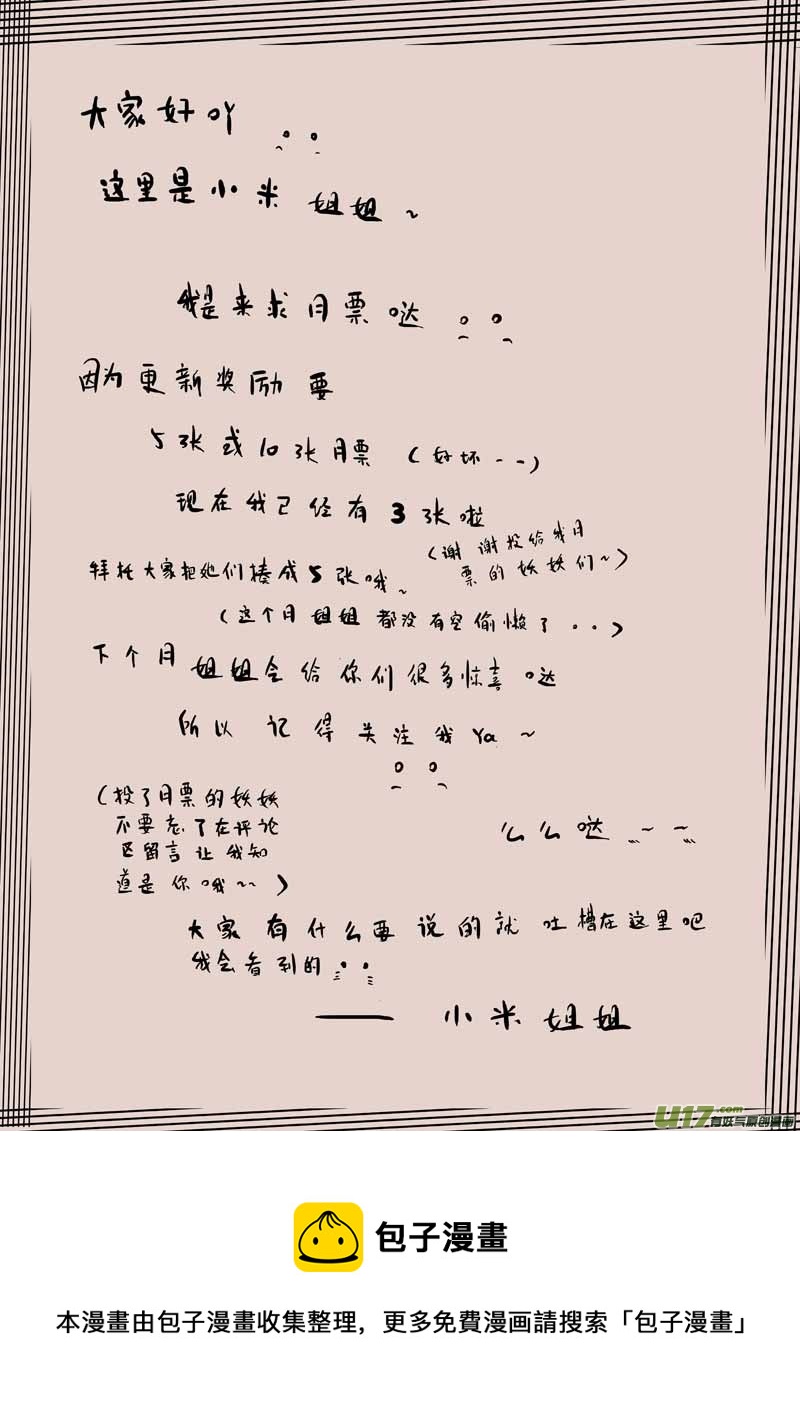 大家好吖
这里是小米姐姐~
我是来求月票哒
因为更新奖励要
5张或10张月票(好坏--)
现在我已经有3张啦
(谢谢投给我月
票的妖妖们~)
拜托大家把她们凑成5张哦~
(这个月姐姐都没有空偷懒了..)
下个月姐姐会给你们很多惊喜哒
所以记得关注我Ya~
(投了月票的妖妖
不要忘了在评论
区留言让我知
道是你哦~~)
么么哒
大家有什么要说的就吐槽在这里吧
我会看到的
——小米姐姐
U17.com
有妖气原创漫画
包子漫畫
本漫畫由包子漫畫收集整理，更多免費漫画請搜索「包子漫畫」